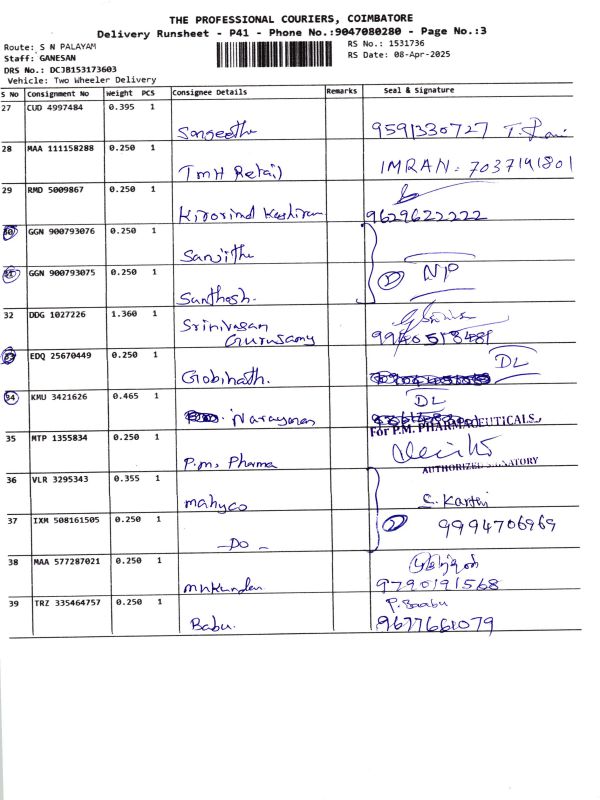 THE PROFESSIONAL COURIERS, COIMBATORE
Delivery Runsheet - P41 - Phone No.:9047080280 - Page No.:3
Route: S N PALAYAM
RS No.: 1531736
Staff: GANESAN
RS Date: 08-Apr-2025
DRS No.: DCJB153173603
Vehicle: Two Wheeler Delivery
S No Consignment No Weight PCS Consignee Details Remarks Seal & Signature
27 CUD 4997484 0.395 1
Sangeetha 9591330727 T. Rani
28 MAA 111158288 0.250 1
TMH Retail IMRAN: 7037191801
29 RMD 5009867 0.250 1
9629622222
30 GGN 900793076 0.250 1
Sanjitha
31 GGN 900793075 0.250 1
Santhosh. 2 NP
32 DDG 1027226 1.360 1
Srinivasan
Gurusamy 9940518481
33 EDQ 25670449 0.250 1
Gobinath. DL
34 KMU 3421626 0.465 1
Narayanan DL
35 MTP 1355834 0.250 1
For P.M. PHARMACEUTICALS.,
P.M. Pharma
AUTHORIZED SIGNATORY
36 VLR 3295343 0.355 1
Mahyco C. Karthi
37 IXM 508161505 0.250 1
- DO - 2 9994706969
38 MAA 577287021 0.250 1
Mukundan 9790191568
39 TRZ 335464757 0.250 1
P. Baabu
Babu. 9677661079